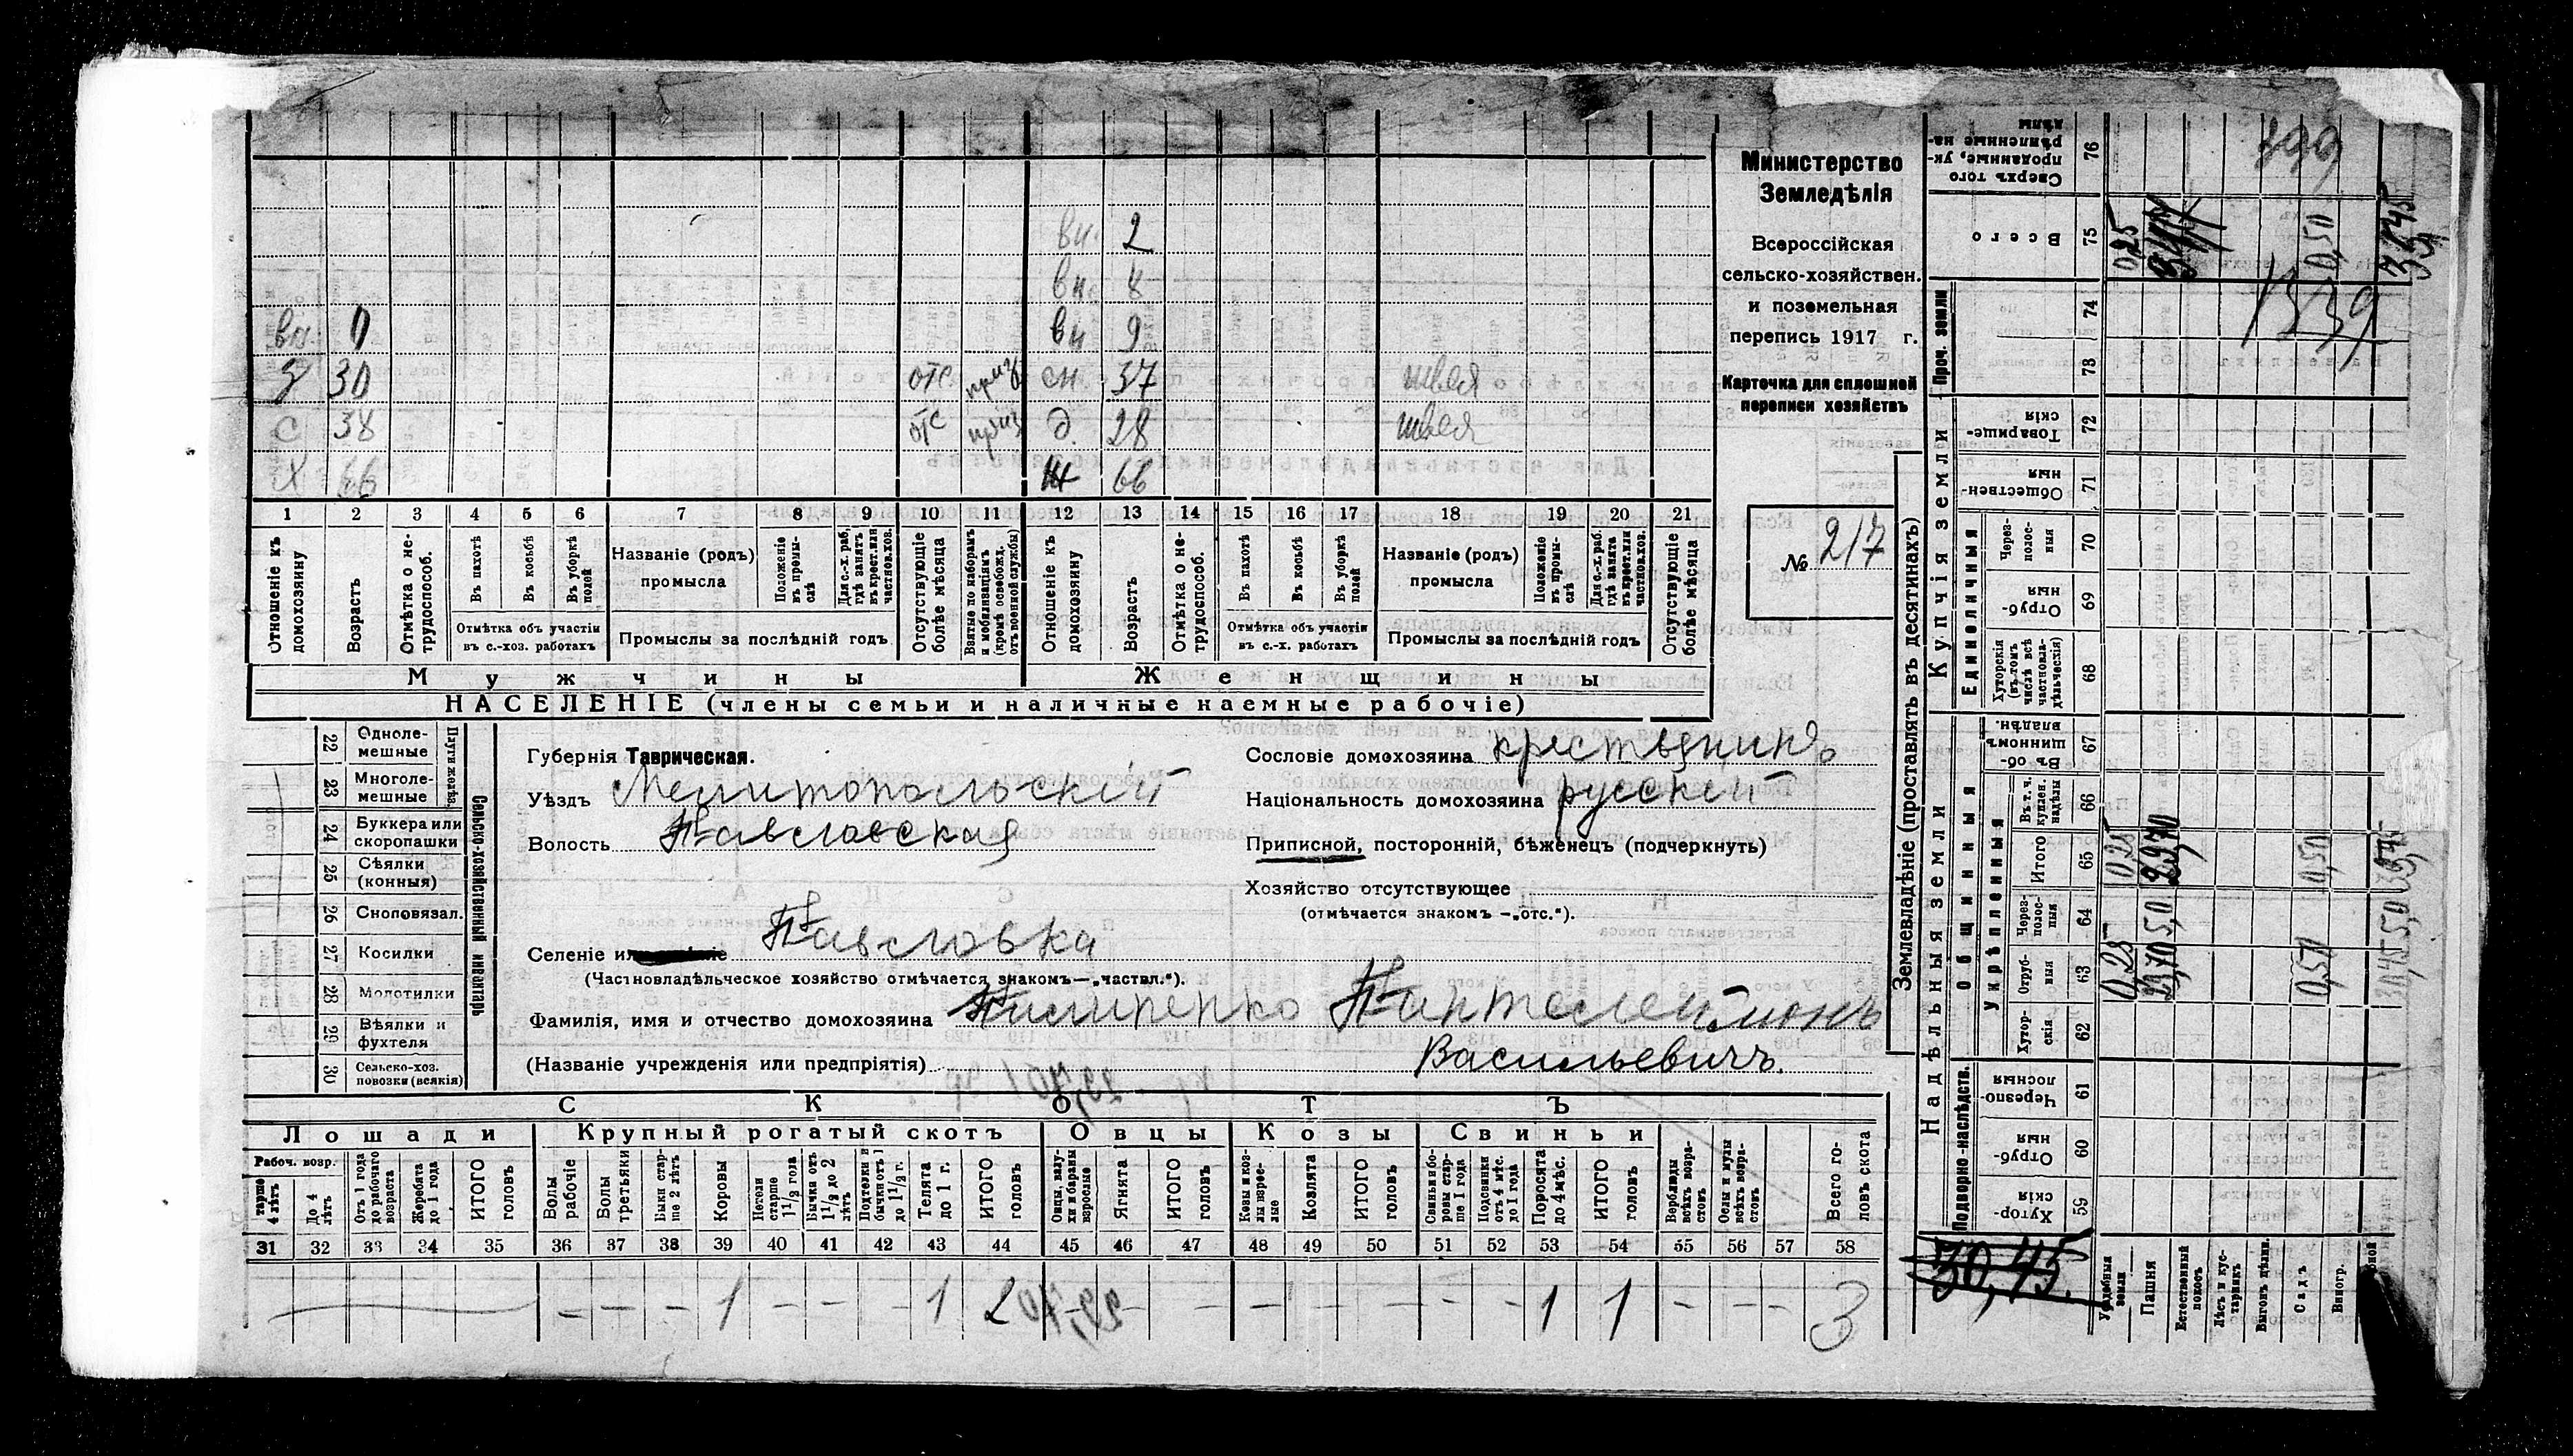 вн. 2
вн. 8
вн. 0 вн 9
З 30 отс. приз сн. 37 швея
С 38 отс приз д. 28 швея
Х 66 ж 66
1 2 3 4 5 6 7 8 9 10 11 12 13 14 15 16 17 18 19 20 21
Отношеніе къ домохозяину
Возрастъ
Отмѣтка о не-трудоспособ.
Въ пахотѣ
Въ косьбѣ
Въ уборкѣ полей
Отмѣтка объ участіи
въ с.-хоз. работахъ
Названіе (родъ)
промысла
Положеніе въ промы-слѣ
Для с.-х. раб. гдѣ занятъ въ крест. или частнов. хоз.
Промыслы за послѣдній годъ
Отсутствующіе болѣе мѣсяца
Взятые по наборамъ и мобилизаціямъ (кромѣ освобожд. отъ военной службы)
Отношеніе къ домохозяину
Возрастъ
Отмѣтка о не-трудоспособ.
Въ пахотѣ
Въ косьбѣ
Въ уборкѣ полей
Отмѣтка объ участіи
въ с.-х. работахъ
Названіе (родъ)
промысла
Положеніе въ промы-слѣ
Для с.-х. раб. гдѣ занята въ крест. или частнов. хоз.
Промыслы за послѣдній годъ
Отсутствующіе болѣе мѣсяца
Мужчины Женщины
НАСЕЛЕНІЕ (члены семьи и наличные наемные рабочіе)
Министерство
Земледѣлія
Всероссійская
сельско-хозяйствен.
и поземельная
перепись 1917 г.
Карточка для сплошной
переписи хозяйствъ
№ 217
22 Одноле-мешные
23 Многоле-мешные
24 Буккера или скоропашки
25 Сѣялки (конныя)
26 Сноповязал.
27 Косилки
28 Молотилки
29 Вѣялки и фухтеля
30 Сельско-хоз. повозки (всякія)
Сельско-хозяйственный инвентарь
Губернія Таврическая.
Уѣздъ Мелитопольскій
Волость Павловская
Селеніе или
Павловка
(Частновладѣльческое хозяйство отмѣчается знакомъ—„частвл.“).
Сословіе домохозяина крестьянинъ
Національность домохозяина русскій
Приписной, посторонній, бѣженецъ (подчеркнуть)
Хозяйство отсутствующее
(отмѣчается знакомъ —„отс.“).
Фамилія, имя и отчество домохозяина Пилипенко Пантелеймонъ
(Названіе учрежденія или предпріятія) Васильевичъ.
СКОТЪ
Лошади Крупный рогатый скотъ Овцы Козы Свиньи
Рабоч. возр.
старше 4 лѣтъ
До 4 лѣтъ
Отъ 1 года до рабочаго возраста
Жеребята до 1 года
ИТОГО головъ
Волы рабочіе
Волы третьяки
Быки стар-ше 2 лѣтъ
Коровы
Нетели старше 1 1/2 года
Бычки отъ 1 1/2 до 2 лѣтъ
Подтелки и бычки отъ 1 до 1 1/2 г.
Телята до 1 г.
ИТОГО головъ
Овцы, валу-хи и бараны взрослые
Ягнята
ИТОГО головъ
Козы и коз-лы взрос-лые
Козлята
ИТОГО головъ
Свиньи и бо-ровы стар-ше 1 года
Подсвинки отъ 4 мѣс. до 1 года
Поросята до 4 мѣс.
ИТОГО головъ
Верблюды всѣхъ возра-стовъ
Ослы и мулы всѣхъ возра-стовъ
Всего го-ловъ скота
31 32 33 34 35 36 37 38 39 40 41 42 43 44 45 46 47 48 49 50 51 52 53 54 55 56 57 58
— — — 1 — — — 1 2 — — — — — — — 1 1 — — — 3
Землевладѣніе (проставлять въ десятинахъ)
Надѣльныя земли
Купчія земли
Проч. земли
Подворно-наслѣдств.
Общинныя
Укрѣпленныя
Единоличныя
Хутор-скія 59
Отруб-ныя 60
Черезпо-лосныя 61
Хутор-скія 62
Отруб-ныя 63
Черезполос-ныя 64
Итого 65
Въ т. ч. куплен. надѣлы 66
Въ об-щинномъ владѣн. 67
Хуторскія (въ томъ числѣ всѣ частновла-дѣльческія) 68
Отруб-ныя 69
Через-полос-ныя 70
Обществен-ныя 71
Товарище-скія 72
73
74
Всего 75
Сверхъ того проданные, ук-рѣпленные на-дѣлы 76
30,45.
Усадебныя земли
Пашня
Естественный покосъ
Лѣсъ и кус-тарникъ
Выгонъ
Садъ
Виногр.
0,25 0,25 0,25
29,70 5,0 29,70
0,50 0,50 0,50
30,45 5,0
399
1339